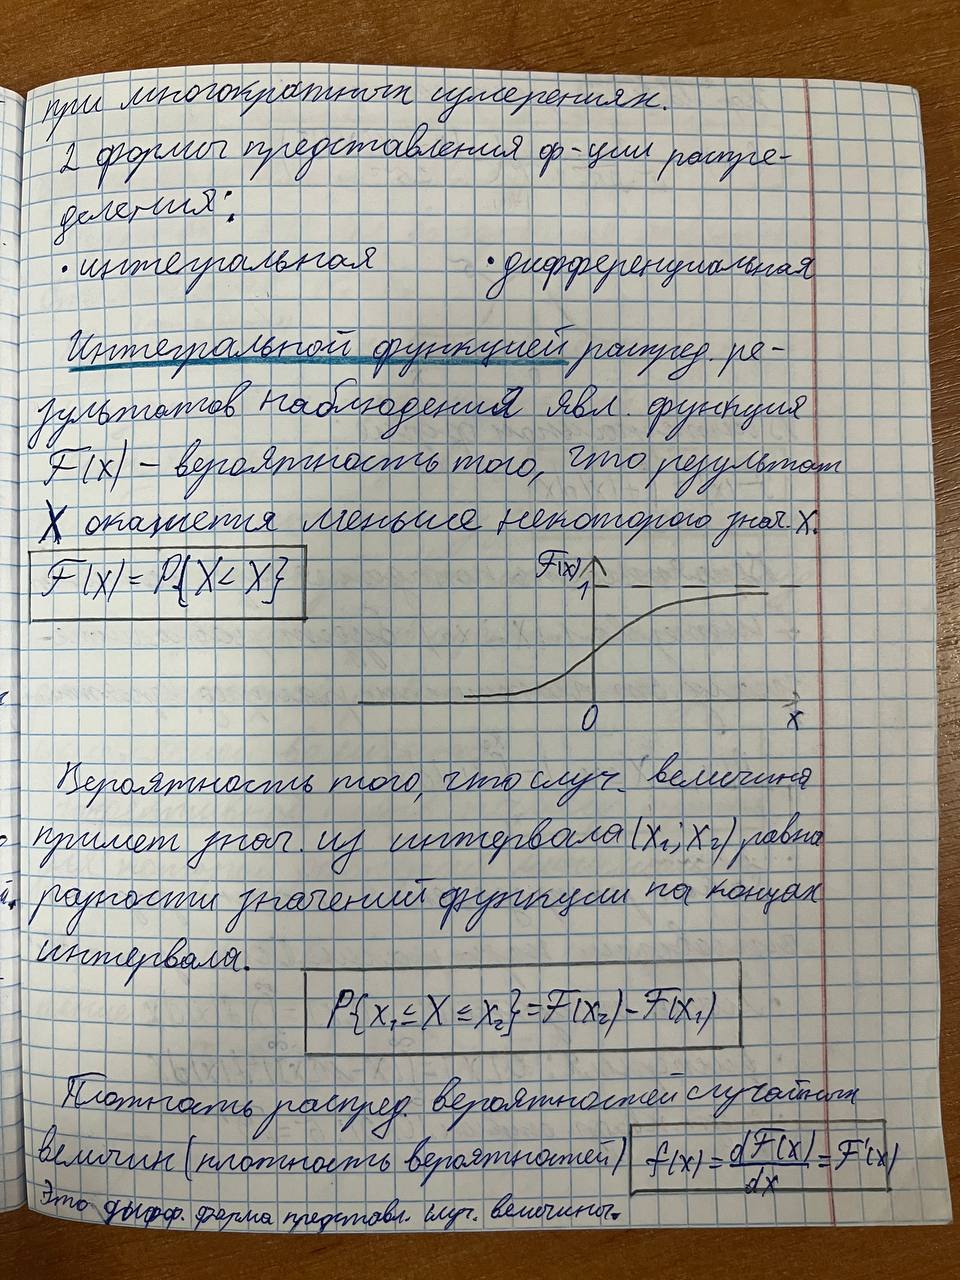 при многократных измерениях.
2 формы представления ф-ции распре-
деления:
• интегральная • дифференциальная
Интегральной функцией распред. ре-
зультатов наблюдений явл. функция
F(x) – вероятность того, что результат
X окажется меньше некоторого знач. x.
F(x) = P{X < X}
F(x)
1
0
x
Вероятность того, что случ. величина
примет знач. из интервала (x₁; x₂) равна
разности значений функции на концах
интервала.
P{x₁ ≤ X ≤ x₂} = F(x₂) – F(x₁)
Плотность распред. вероятностей случайных
величин (плотность вероятностей) f(x) = dF(x)/dx = F'(x)
Это дифф. форма представл. случ. величины.